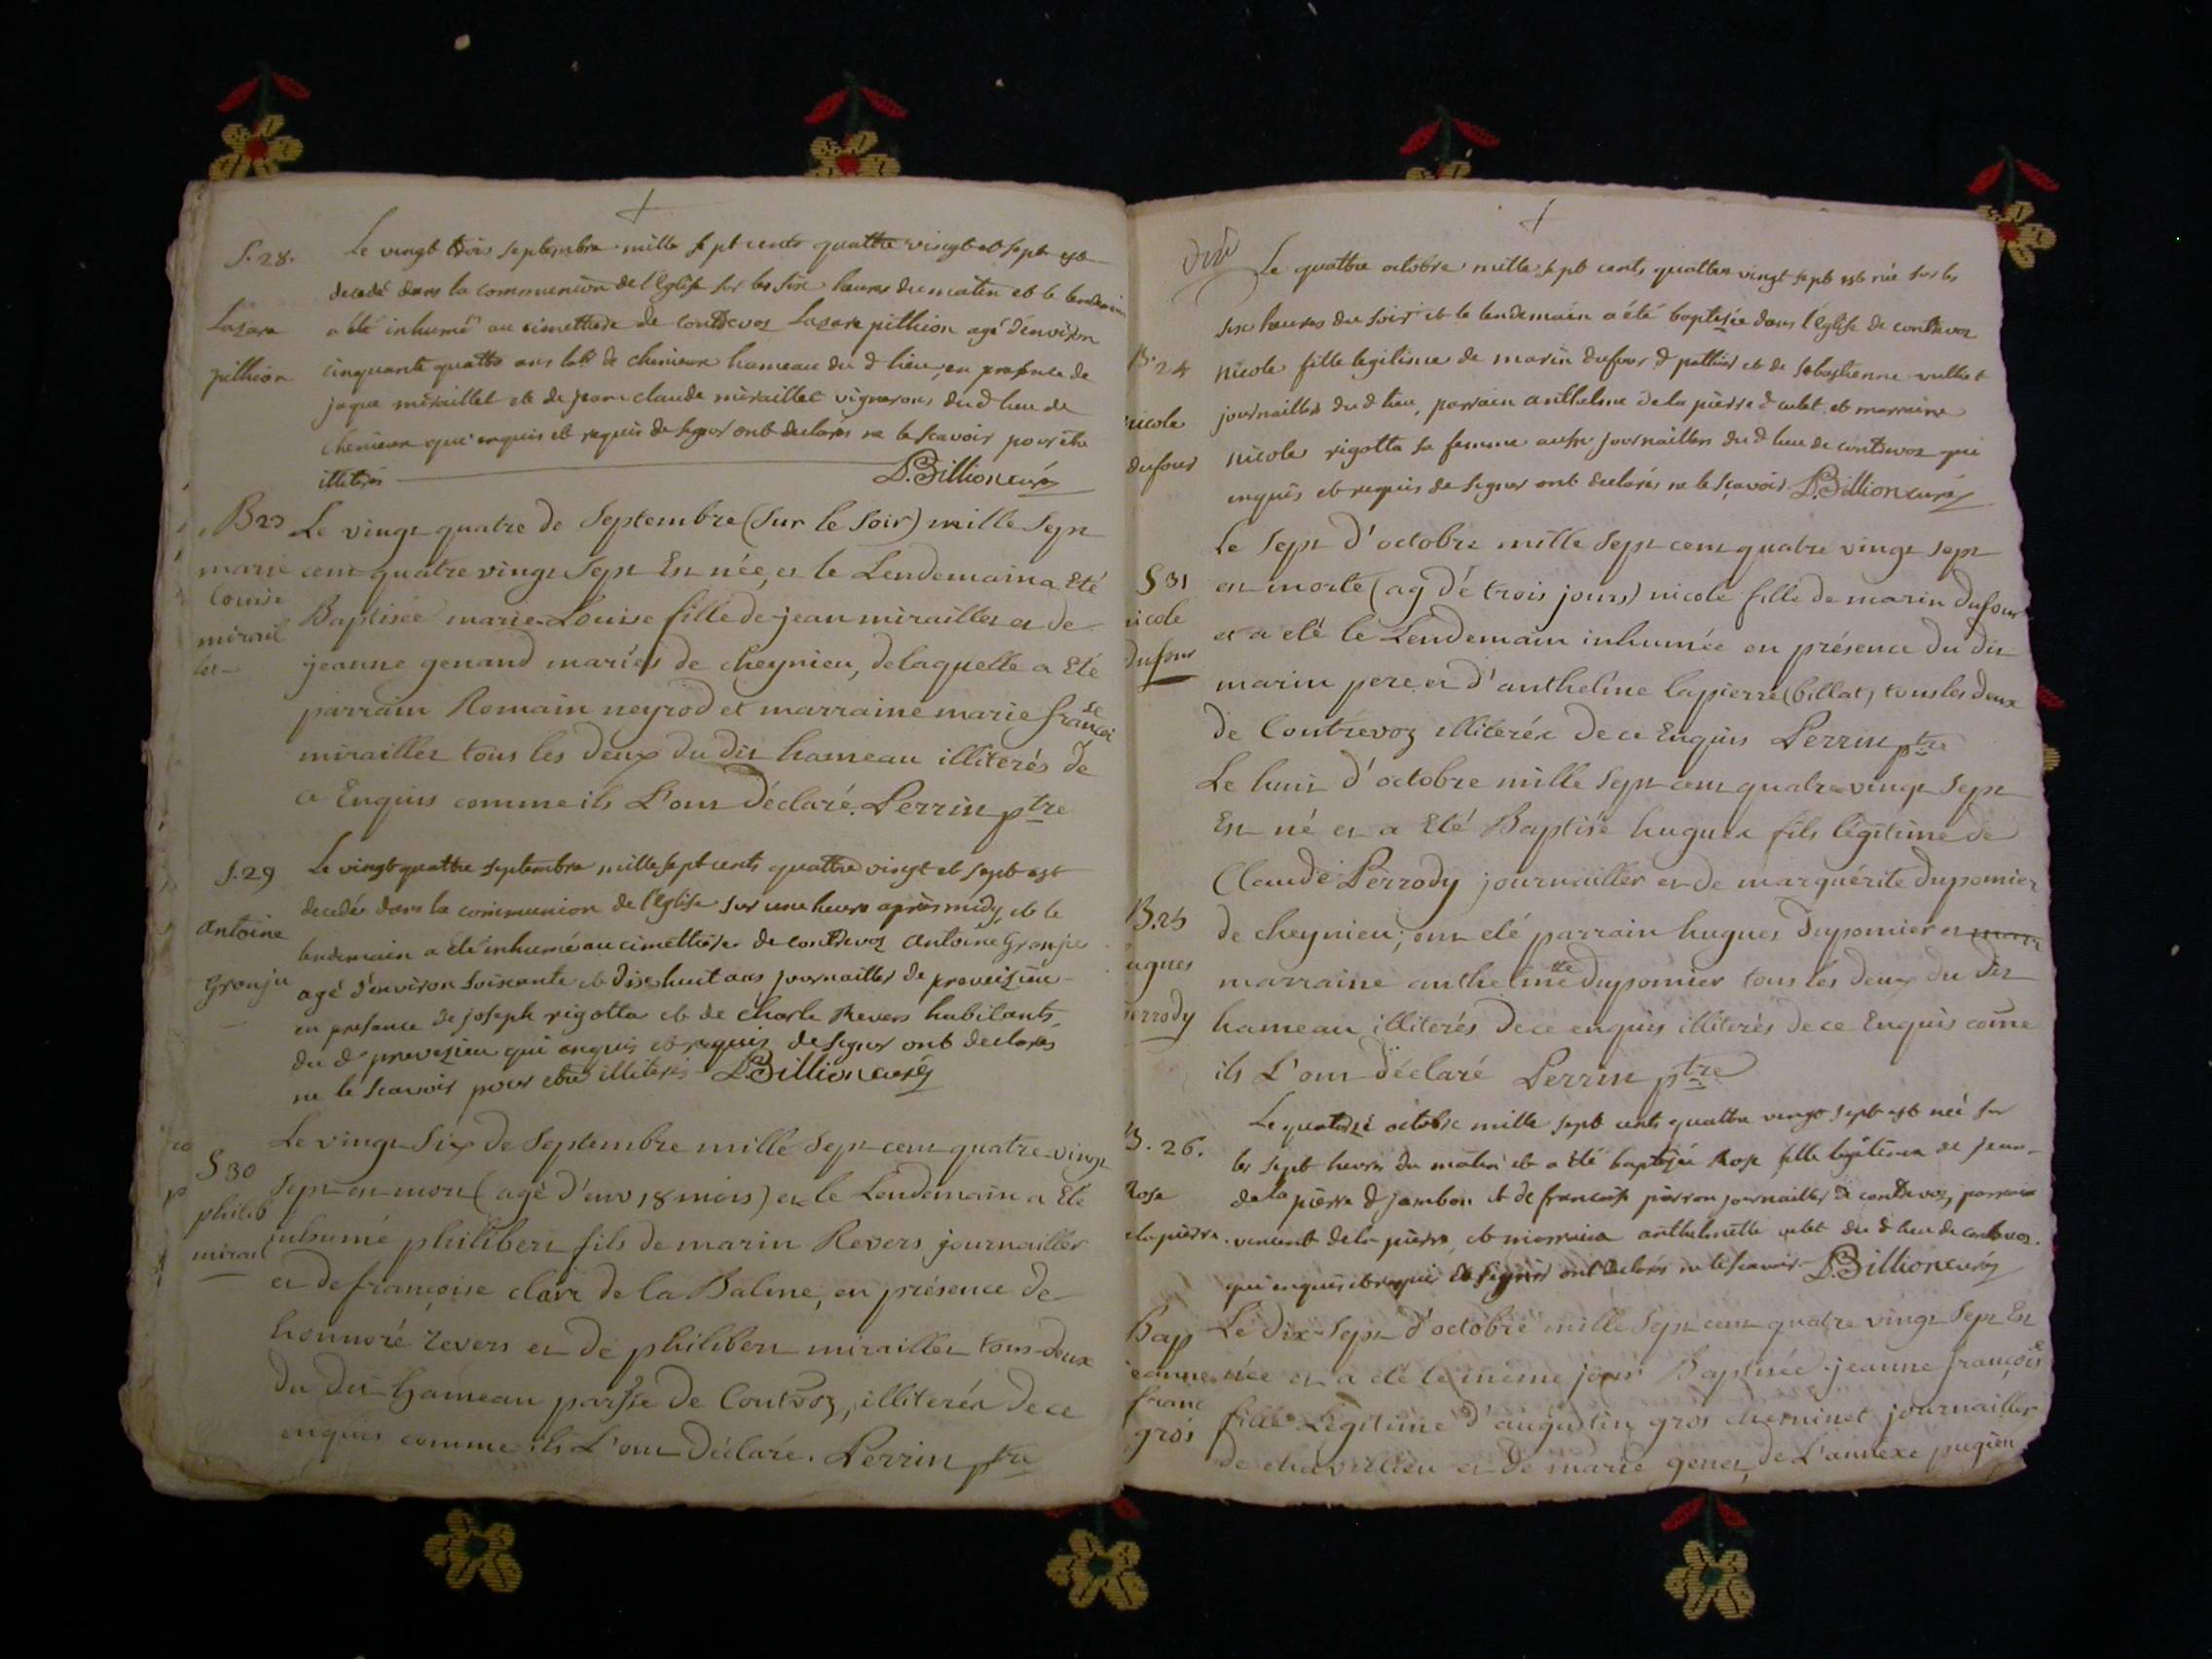 S.28.
Lazare
pithion
Le vingt trois septembre mille sept cents quattre vingt et sept est
decedé dans la communion de l'Eglise sur les six heures du matin et le lendemain
a été inhumé au cimettiere de contrevoz Lazare pithion agé d'environ
cinquante quattre ans lab^r de chenieux hameau du d lieu, en presence de
jaque miraillet et de jean claude miraillet vignerons du d lieu de
chenieux qui enquis et requis de signer ont declarés ne le scavoir pour être
illiterés D. Billion curé
B23
marie
Louise
mirail
let
Le vingt quatre de Septembre (sur le soir) mille sept
cent quatre vingt sept Est née, et le Lendemain a Eté
Baptisée marie Louise fille de jean miraillet et de
jeanne genand mariés de cheynieu, de laquelle a Eté
parrain Romain neyrod et marraine marie françoise
miraillet tous les deux du dit hameau illiterés de
ce Enquis comme ils L'ont Déclaré. Perrin ptre
S.29
antoine
Gronju
Le vingt quattre septembre mille sept cents quattre vingt et sept est
decedé dans la communion de l'Eglise sur une heure après midy, et le
lendemain a été inhumé au cimettiere de contrevoz antoine Gronju
agé d'environ soixante et dixe huit ans journaillier de preveizieu
en presance de joseph rigotta et de charle Revers habitants
du d prevezieu qui enquis et requis de signer ont declarés
ne le scavoir pour être illiterés D. Billion curé
S 30
philib
mirail
Le vingt Six de Septembre mille Sept cent quatre vingt
sept est mort (agé d'env 18 mois) et le Lendemain a Eté
inhumé philibert fils de marin Revers journaillier
et de françoise clair de la Balme, en présence de
honnoré revers et de philibert miraillet tous deux
du dit hameau parsse de Contrvoz, illiterés de ce
enquis comme ils L'ont Déclaré. Perrin ptre
B.24
nicole
dufour
Le quattre octobre mille sept cents quattre vingt sept est née sur les
six heures du soir et le lendemain a été baptisée dans l'Eglise de contrevoz
nicole fille legitime de marin dufour d pathiod et de sebastienne vulliet
journaillers du d lieu, parrain anthelme de la pierre d culet et marraine
nicole rigotta sa femme aussi journaillers du d lieu de contrevoz qui
enquis et requis de signer ont declarés ne le sçavoir D. Billion curé
S 31
nicole
dufour
Le Sept d'octobre mille Sept cent quatre vingt sept
est morte (ag d'é trois jours) nicole fille de marin Dufour
et a eté le Lendemain inhumée en présence du dit
marin pere et d'anthelme lapierre (billat) tous les deux
de Contrevoz illiterés de ce Enquis Perrin ptre
B.25
ugues
errody
Le huit d'octobre mille sept cent quatre vingt sept
Est né et a Eté Baptisé hugues fils légitime de
Claude Perrody journaillier et de marguérite dupomier
de cheynieu; ont eté parrain hugues Dupomier et marr
marraine anthelmette Dupomier tous les deux du dit
hameau illiterés de ce enquis illiterés de ce Enquis come
ils L'ont déclaré Perrin ptre
B.26.
Rose
elapierre
Le quatorze octobre mille sept cents quattre vingt sept est née sur
les sept heures du matin et a été baptisée Rose fille legitime de jean
de la pierre d jambon et de francoise pirron journaillers de contrevoz, parrain
vincent de la pierre, et marraine anthelmette culet du d lieu de contrevoz.
qui enquis et requis de signer ont declarés ne le scavoir D. Billion curé
Bap
jeanne
franc
gros
Le Dix-Sept d'octobre mille Sept cent quatre vingt Sept Est
née et a eté le même jour Baptisée jeanne françoise
fille Légitime d'augustin gros cheminet journaillier
de chavillieu et de marie genet, de L'annexe pugieu